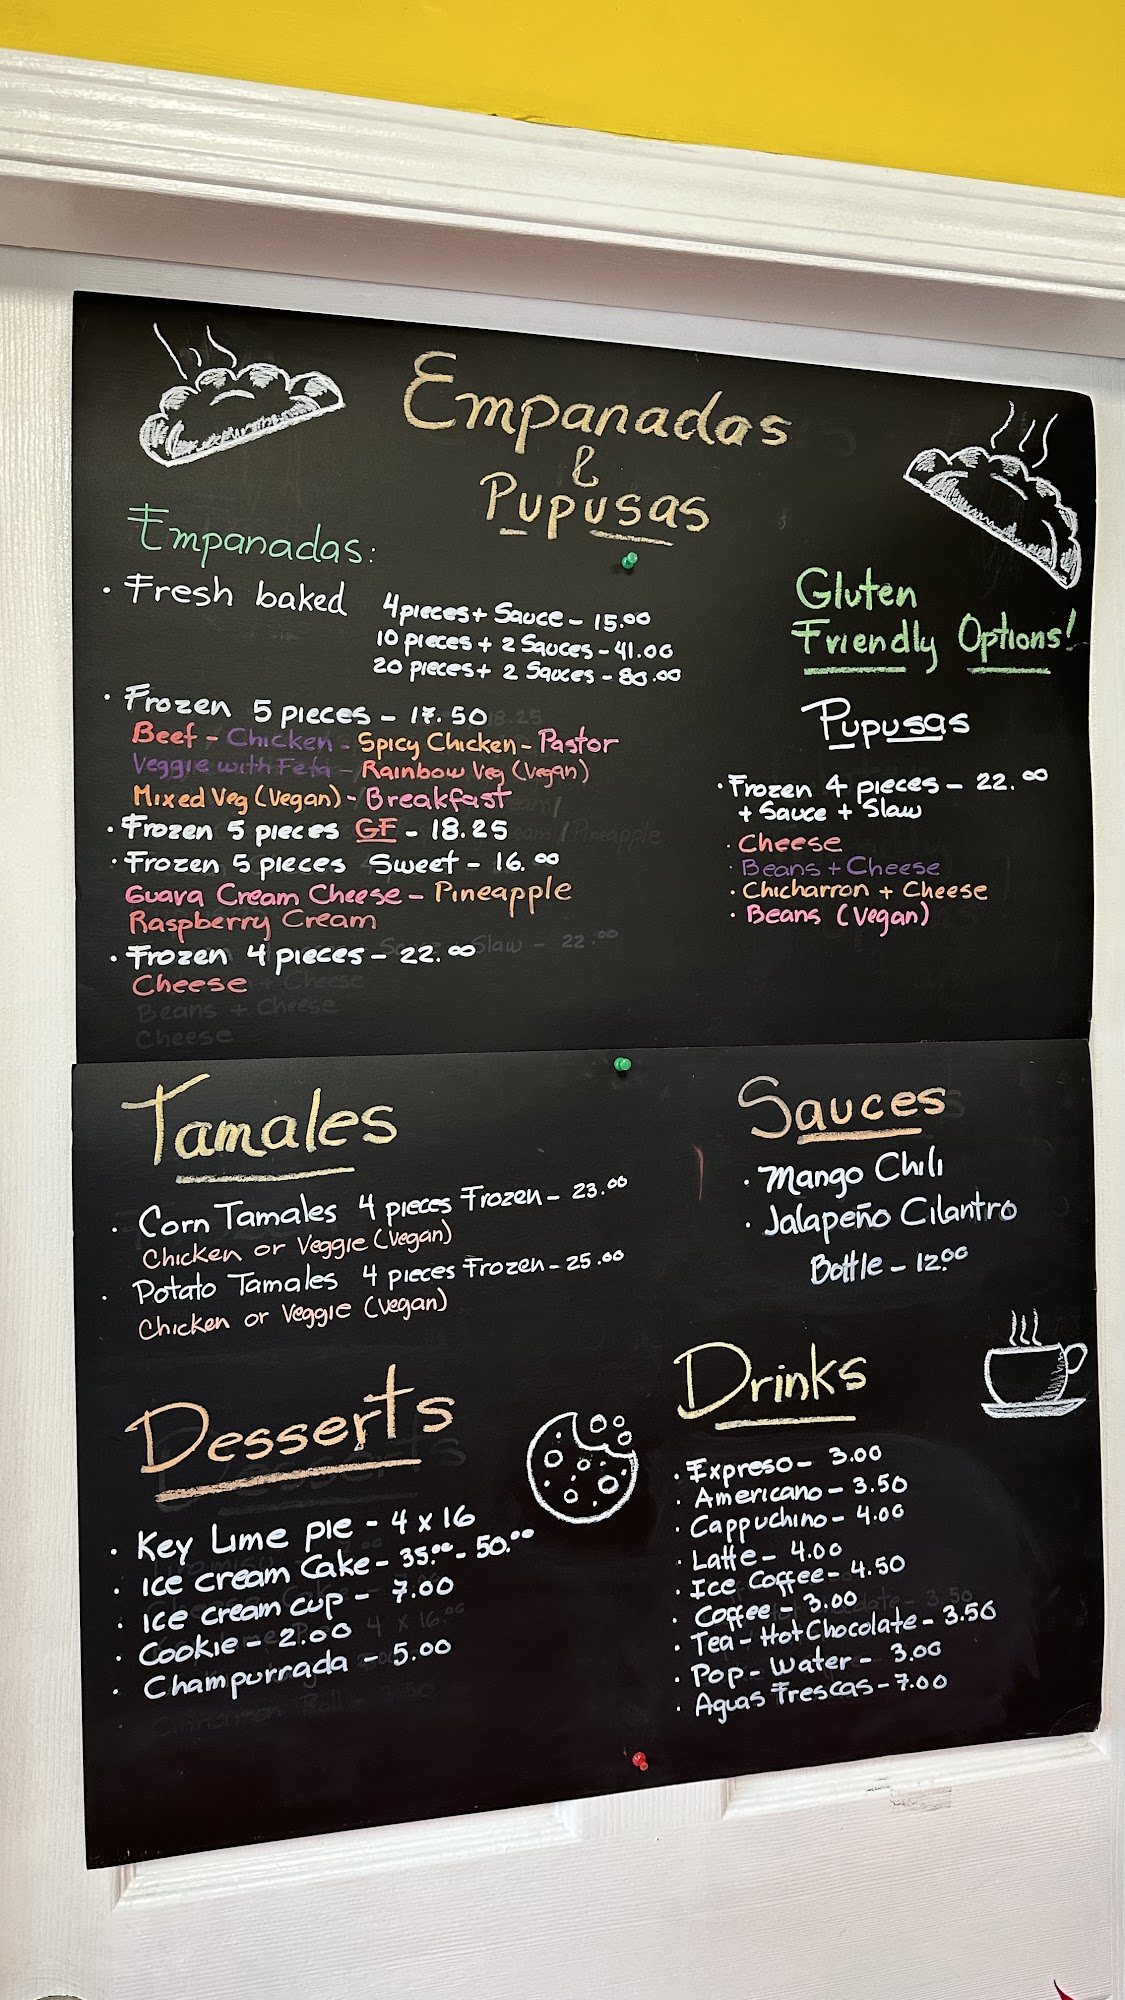 Empanadas
&
Pupusas
Empanadas:
· Fresh baked
4 pieces + Sauce - 15.00
10 pieces + 2 Sauces - 41.00
20 pieces + 2 Sauces - 80.00
· Frozen 5 pieces - 17.50
Beef - Chicken - Spicy Chicken - Pastor
Veggie with Feta - Rainbow Veg (Vegan)
Mixed Veg (Vegan) - Breakfast
· Frozen 5 pieces GF - 18.25
· Frozen 5 pieces Sweet - 16.00
Guava Cream Cheese - Pineapple
Raspberry Cream
· Frozen 4 pieces - 22.00
Cheese
Beans + Cheese
Cheese
Gluten
Friendly Options!
Pupusas
· Frozen 4 pieces - 22.00
+ Sauce + Slaw
· Cheese
· Beans + Cheese
· Chicharron + Cheese
· Beans (Vegan)
Tamales
· Corn Tamales 4 pieces Frozen - 23.00
Chicken or Veggie (Vegan)
· Potato Tamales 4 pieces Frozen - 25.00
Chicken or Veggie (Vegan)
Sauces
· Mango Chili
· Jalapeño Cilantro
Bottle - 12.00
Desserts
· Key Lime pie - 4 x 16
· Ice cream Cake - 35.00 - 50.00
· Ice cream cup - 7.00
· Cookie - 2.00
· Champurrada - 5.00
Drinks
· Expreso - 3.00
· Americano - 3.50
· Cappuchino - 4.00
· Latte - 4.00
· Ice Coffee - 4.50
· Coffee - 3.00
· Tea - Hot Chocolate - 3.50
· Pop - Water - 3.00
· Aguas Frescas - 7.00